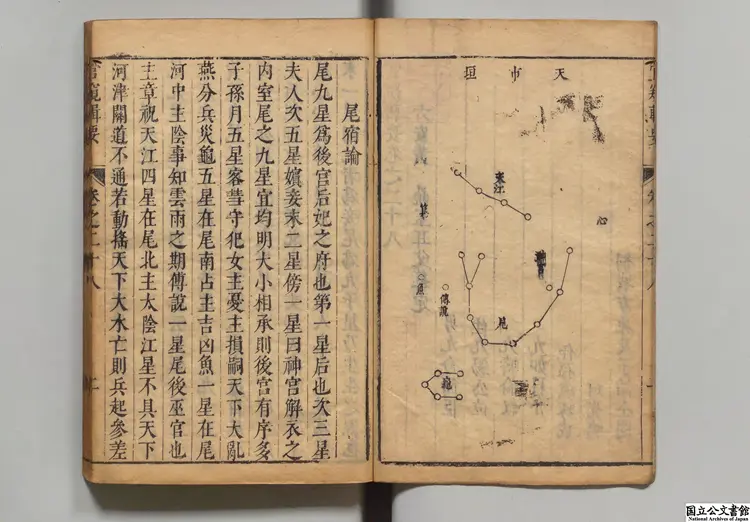 天市垣
天江
心
箕
魚
傅說
尾
龜
尾宿論
尾九星爲後宮后妃之府也第一星后也次三星
夫人次五星嬪妾末二星傍一星曰神宮解衣之
内室尾之九星宜均明大小相承則後宮有序多
子孫月五星客彗守犯女主憂主損嗣天下大亂
燕分兵災龜五星在尾南占主吉凶魚一星在尾
河中主陰事知雲雨之期傳說一星尾後巫官也
主章祝天江四星在尾北主太陰江星不具天下
河津關道不通若動揺天下大水亡則兵起參差
管窺輯要
卷之二十八
国立公文書館
National Archives of Japan